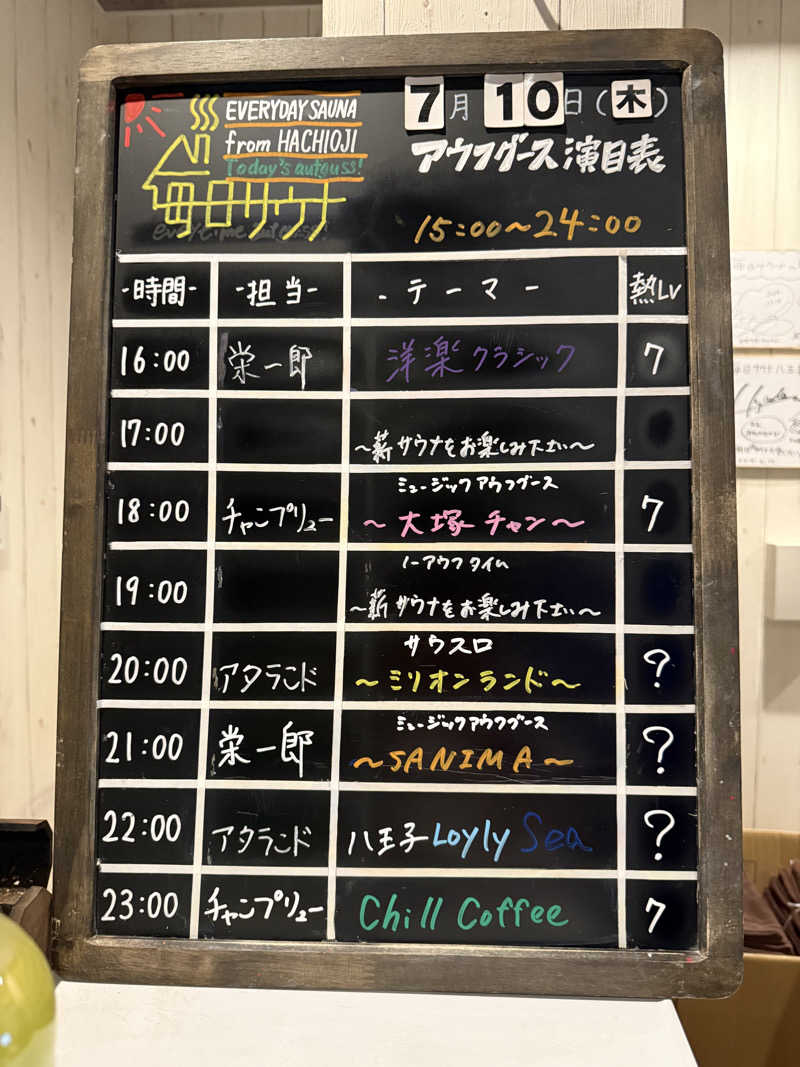 EVERYDAY SAUNA
from HACHIOJI
Today's aufguss!
毎日サウナ
7月10日(木)
アウフグース演目表
15:00~24:00
-時間- -担当- -テーマー 熱Lv
16:00 栄一郎 洋楽クラシック 7
17:00 ~薪サウナをお楽しみ下さい~
18:00 チャンプリュー ミュージックアウフグース
~大塚チャン~ 7
19:00 ノーアウフタイム
~薪サウナをお楽しみ下さい~
20:00 アタランド サウスロ
~ミリオンランド~ ?
21:00 栄一郎 ミュージックアウフグース
~SANIMA~ ?
22:00 アタランド 八王子 Loyly Sea ?
23:00 チャンプリュー Chill Coffee 7